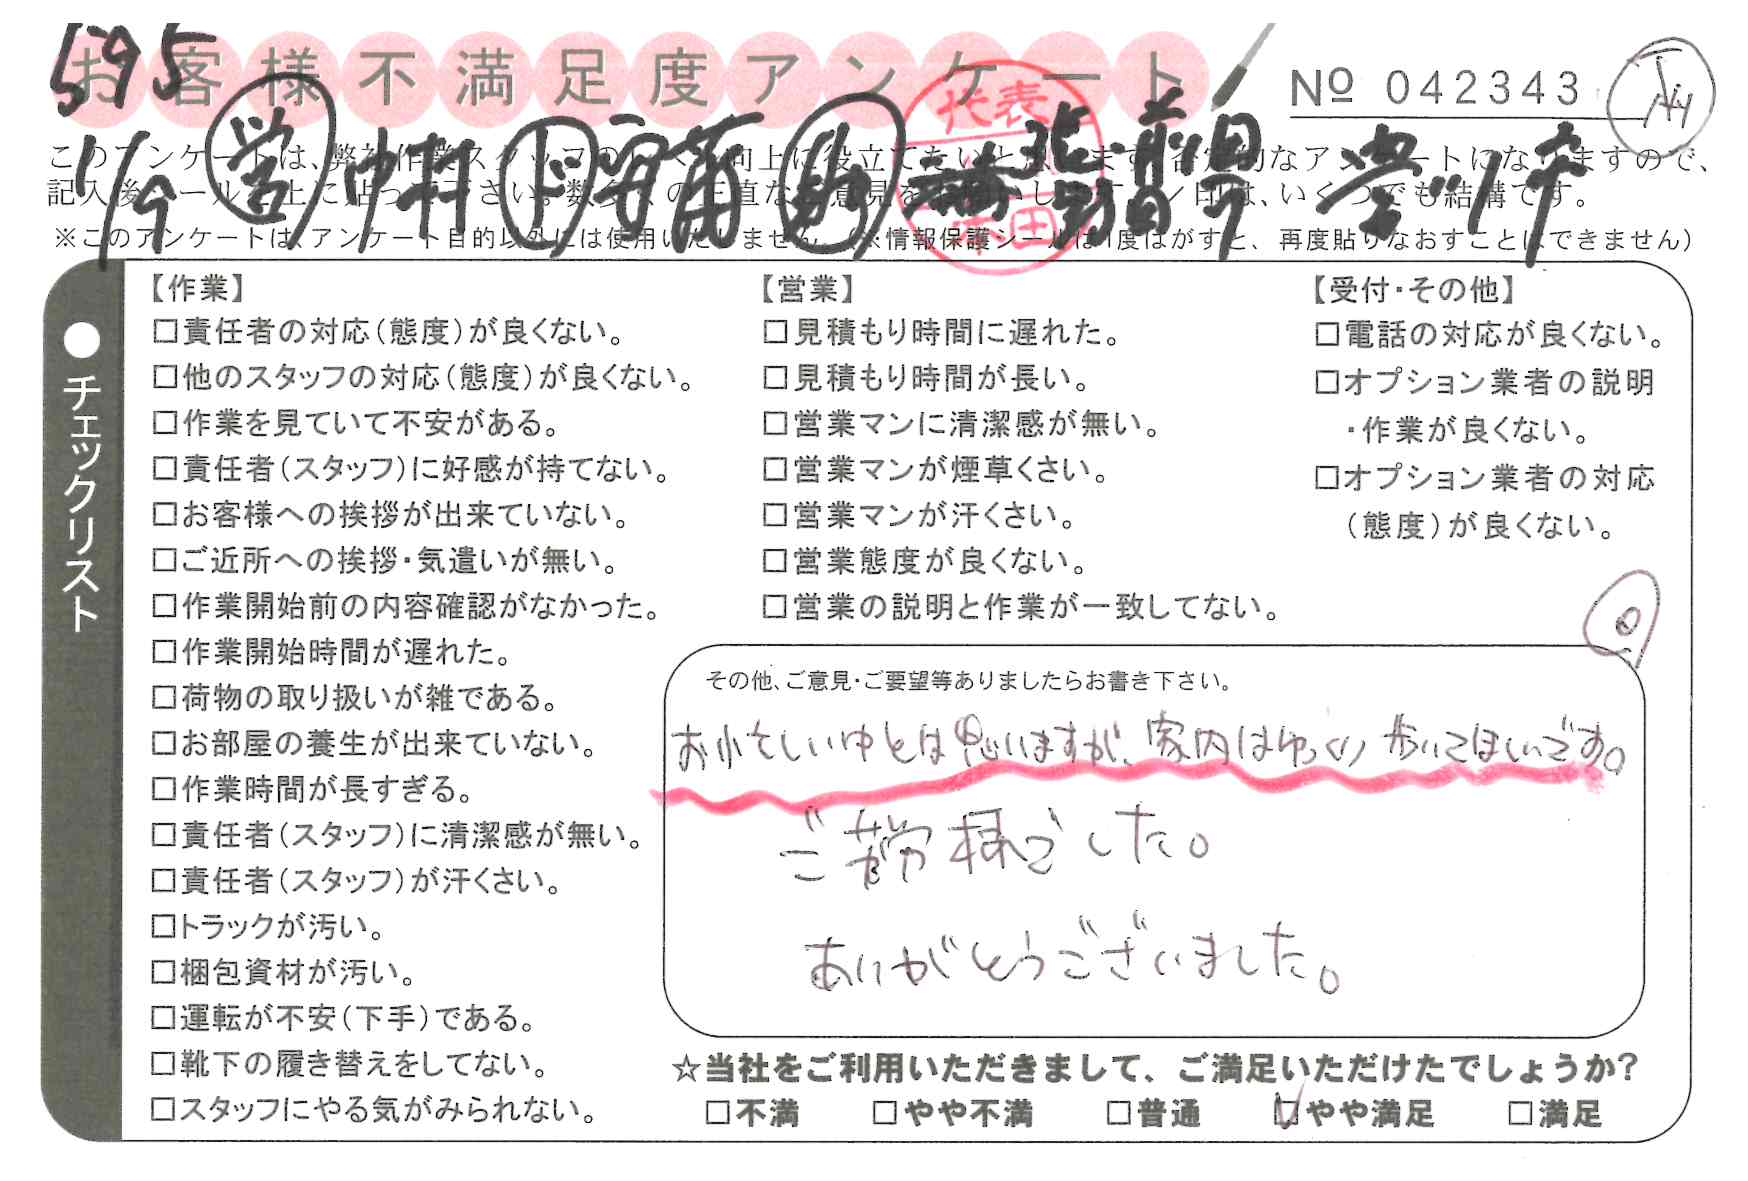 595
お客様不満足度アンケート
No 042343
1/9 営 中村 ド 斉藤
代表
このアンケートは、弊社作業スタッフの 向上に役立てたいと思います。否定的なアンケートになりますので、
記入後シールを上に貼って下さい。数多くの正直なご意見をお願いします。/印は、いくつでも結構です。
※このアンケートは、アンケート目的以外には使用いたしません。(※情報保護シールは1度はがすと、再度貼りなおすことはできません)
●チェックリスト
【作業】
□責任者の対応(態度)が良くない。
□他のスタッフの対応(態度)が良くない。
□作業を見ていて不安がある。
□責任者(スタッフ)に好感が持てない。
□お客様への挨拶が出来ていない。
□ご近所への挨拶・気遣いが無い。
□作業開始前の内容確認がなかった。
□作業開始時間が遅れた。
□荷物の取り扱いが雑である。
□お部屋の養生が出来ていない。
□作業時間が長すぎる。
□責任者(スタッフ)に清潔感が無い。
□責任者(スタッフ)が汗くさい。
□トラックが汚い。
□梱包資材が汚い。
□運転が不安(下手)である。
□靴下の履き替えをしてない。
□スタッフにやる気がみられない。
【営業】
□見積もり時間に遅れた。
□見積もり時間が長い。
□営業マンに清潔感が無い。
□営業マンが煙草くさい。
□営業マンが汗くさい。
□営業態度が良くない。
□営業の説明と作業が一致してない。
【受付・その他】
□電話の対応が良くない。
□オプション業者の説明
・作業が良くない。
□オプション業者の対応
(態度)が良くない。
その他、ご意見・ご要望等ありましたらお書き下さい。
お忙しい中とは思いますが、家内はゆっくり歩いてほしいです。
ご苦労様でした。
ありがとうございました。
☆当社をご利用いただきまして、ご満足いただけたでしょうか?
□不満 □やや不満 □普通 ☑やや満足 □満足